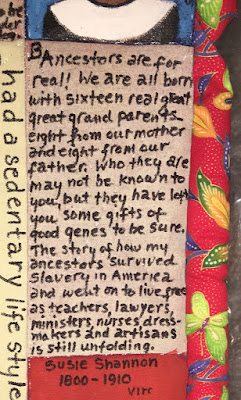 to be
der
BAncestors are for
real! We are all born
with sixteen real great
great grand parents
eight from our mother
and eight from our
father. Who they are
may not be known to
you, but they have left
you some gifts of
good genes to be sure.
The story of how my
ancestors survived
Slavery in America
and went on to live free
as teachers, lawyers,
ministers, nurses, dress-
makers and artisans
is still unfolding.
Susie Shannon
1800 - 1910
had a sedentary life style